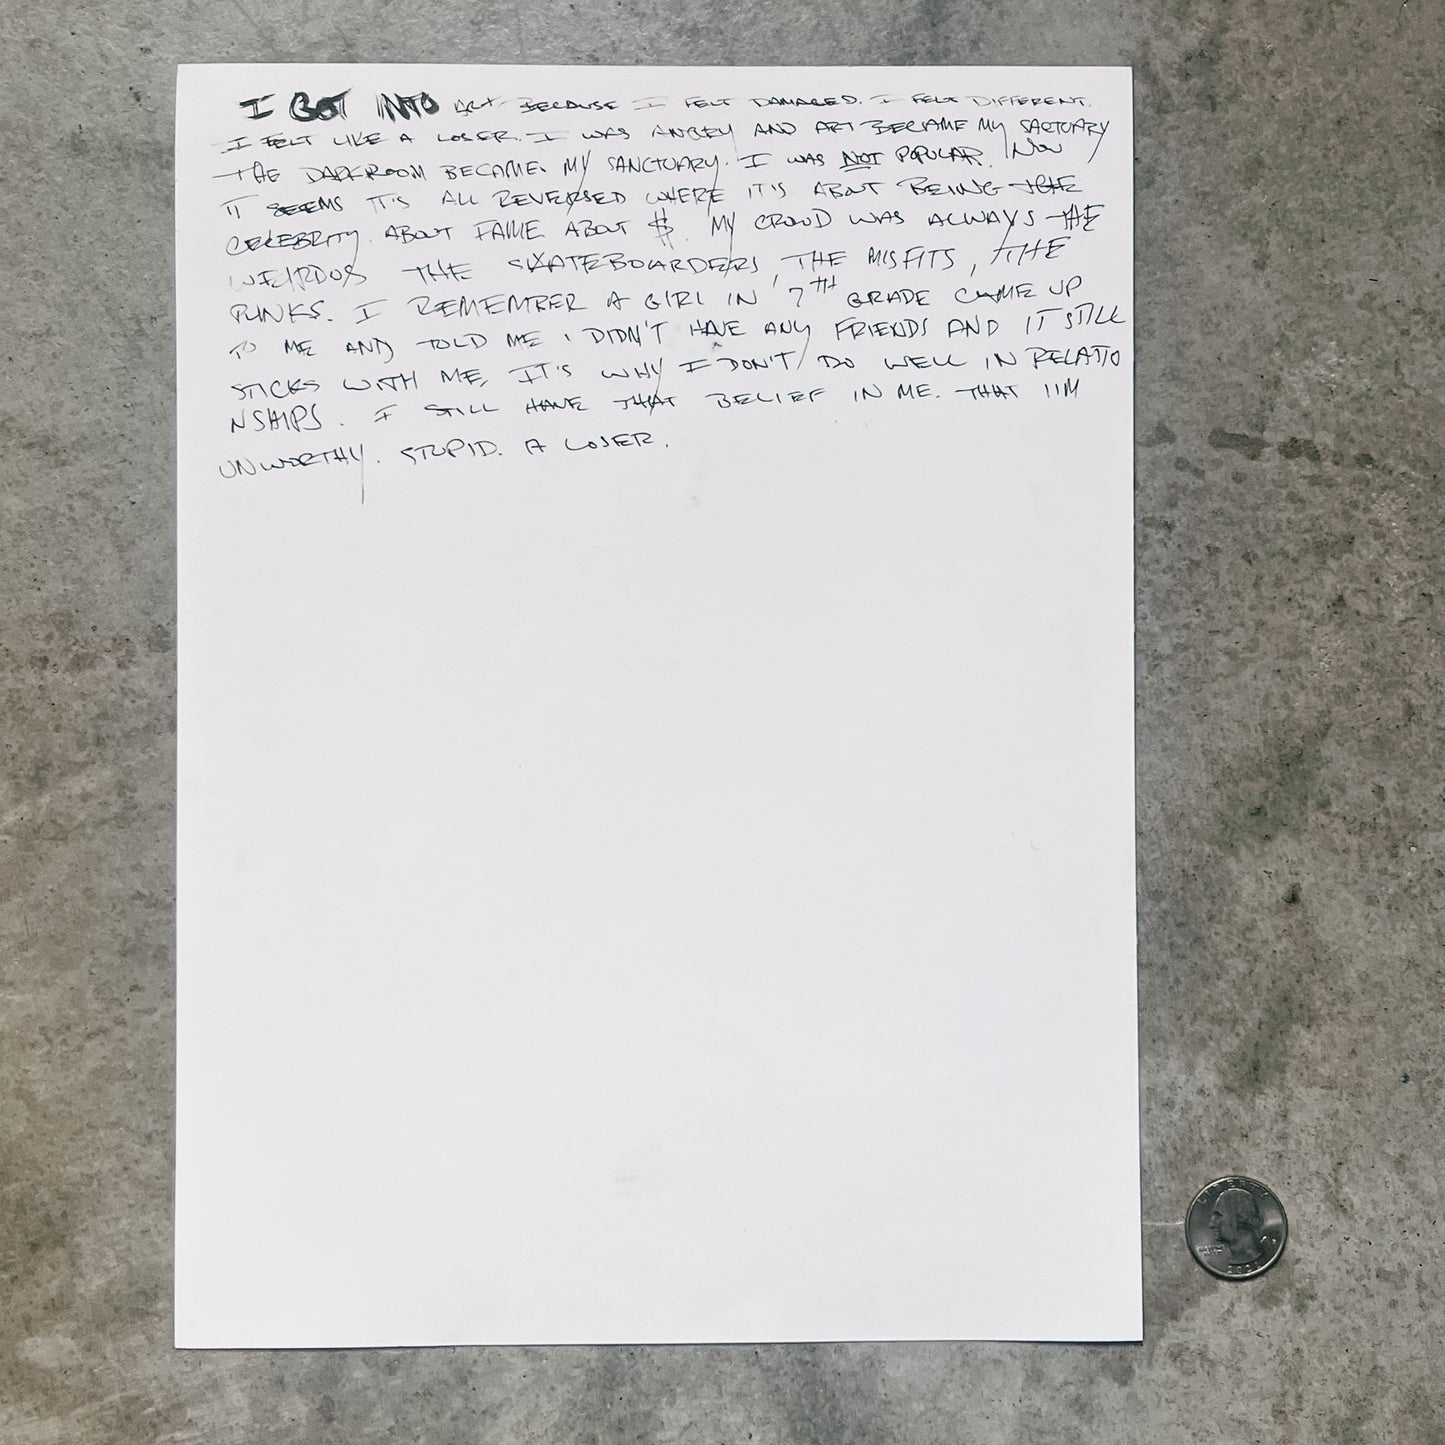 I GOT INTO ART BECAUSE I FELT DAMAGED. I FELT DIFFERENT.
I FELT LIKE A LOSER. I WAS ANGRY AND ART BECAME MY SACTUARY
THE DARKROOM BECAME MY SANCTUARY. I WAS NOT POPULAR. NOW
IT SEEMS IT'S ALL REVERSED WHERE IT'S ABOUT BEING THE
CELEBRITY. ABOUT FAME. ABOUT $. MY CROWD WAS ALWAYS THE
WEIRDOS THE SKATEBOARDERS, THE MISFITS, THE
PUNKS. I REMEMBER A GIRL IN 7TH GRADE CAME UP
TO ME AND TOLD ME I DIDN'T HAVE ANY FRIENDS AND IT STILL
STICKS WITH ME, IT'S WHY I DON'T DO WELL IN RELATIO
NSHIPS. I STILL HAVE THAT BELIEF IN ME. THAT I'M
UNWORTHY. STUPID. A LOSER.
LIBERTY